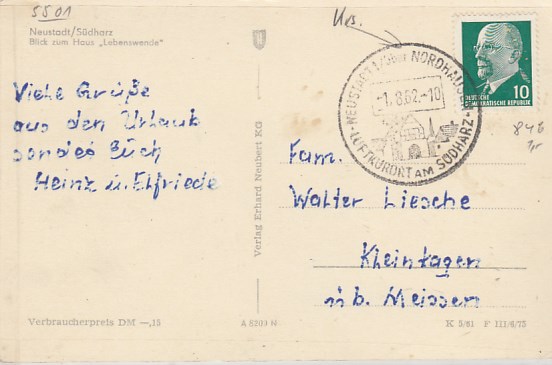 5501
Neustadt/Südharz
Blick zum Haus „Lebenswende"
Viele Grüße
aus den Urlaub
sendes Euch
Heinz u. Elfriede
Verbraucherpreis DM —,15
A 8209 N
Verlag Erhard Neubert KG
NEUSTADT ü/ber NORDHAUSEN
-1.8.62.-10
LUFTKURORT AM SÜDHARZ
10
DEUTSCHE
DEMOKRATISCHE REPUBLIK
846
Fam.
Walter Liesche
Kleinkagen
üb. Meissen
K 5/61 F III/6/75